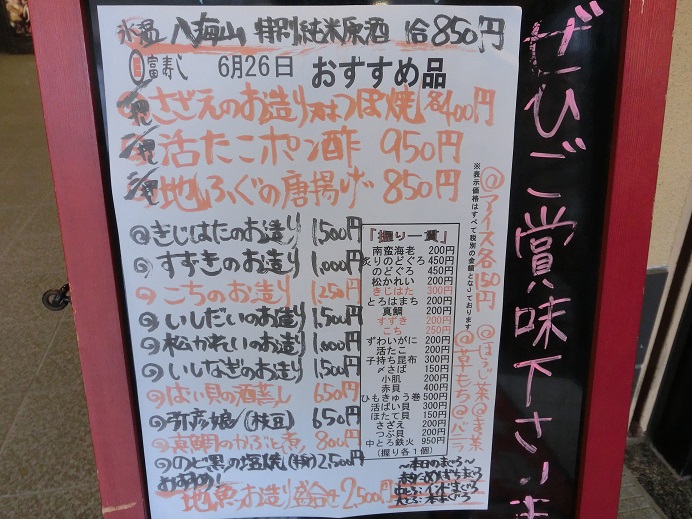 氷温 八海山 特別純米原酒 1合850円
富寿し 6月26日 おすすめ品
さざえのお造り又はつぼ焼 各400円
活たこポン酢 950円
地ふぐの唐揚げ 850円
きじはたのお造り 1,500円
すずきのお造り 1,000円
こちのお造り 1,250円
いしだいのお造り 1,500円
松かれいのお造り 1,000円
いしなぎのお造り 1,500円
ばい貝の酒蒸し 650円
弥彦娘(枝豆) 650円
真鯛のかぶと煮 800円
のど黒の塩焼(特大) 2,500円
おすすめ!
地魚お造り盛合せ 2,500円
「握り一貫」
南蛮海老 200円
炙りのどぐろ 450円
のどぐろ 450円
松かれい 200円
きじはた 300円
とろはまち 200円
真鯛 200円
すずき 200円
こち 250円
ずわいがに 200円
活たこ 200円
子持ち昆布 300円
〆さば 150円
小肌 200円
赤貝 400円
ひもきゅう巻 500円
活ばい貝 300円
ほたて貝 150円
さざえ 200円
つぶ貝 200円
中とろ鉄火 950円
(握り各1個)
〜本日のまぐろ〜
※表示価格はすべて税別の金額となります
@アイス各150円
@ほうじ茶 @まっ茶
@草もち @バニラ
ぜひご賞味下さいま